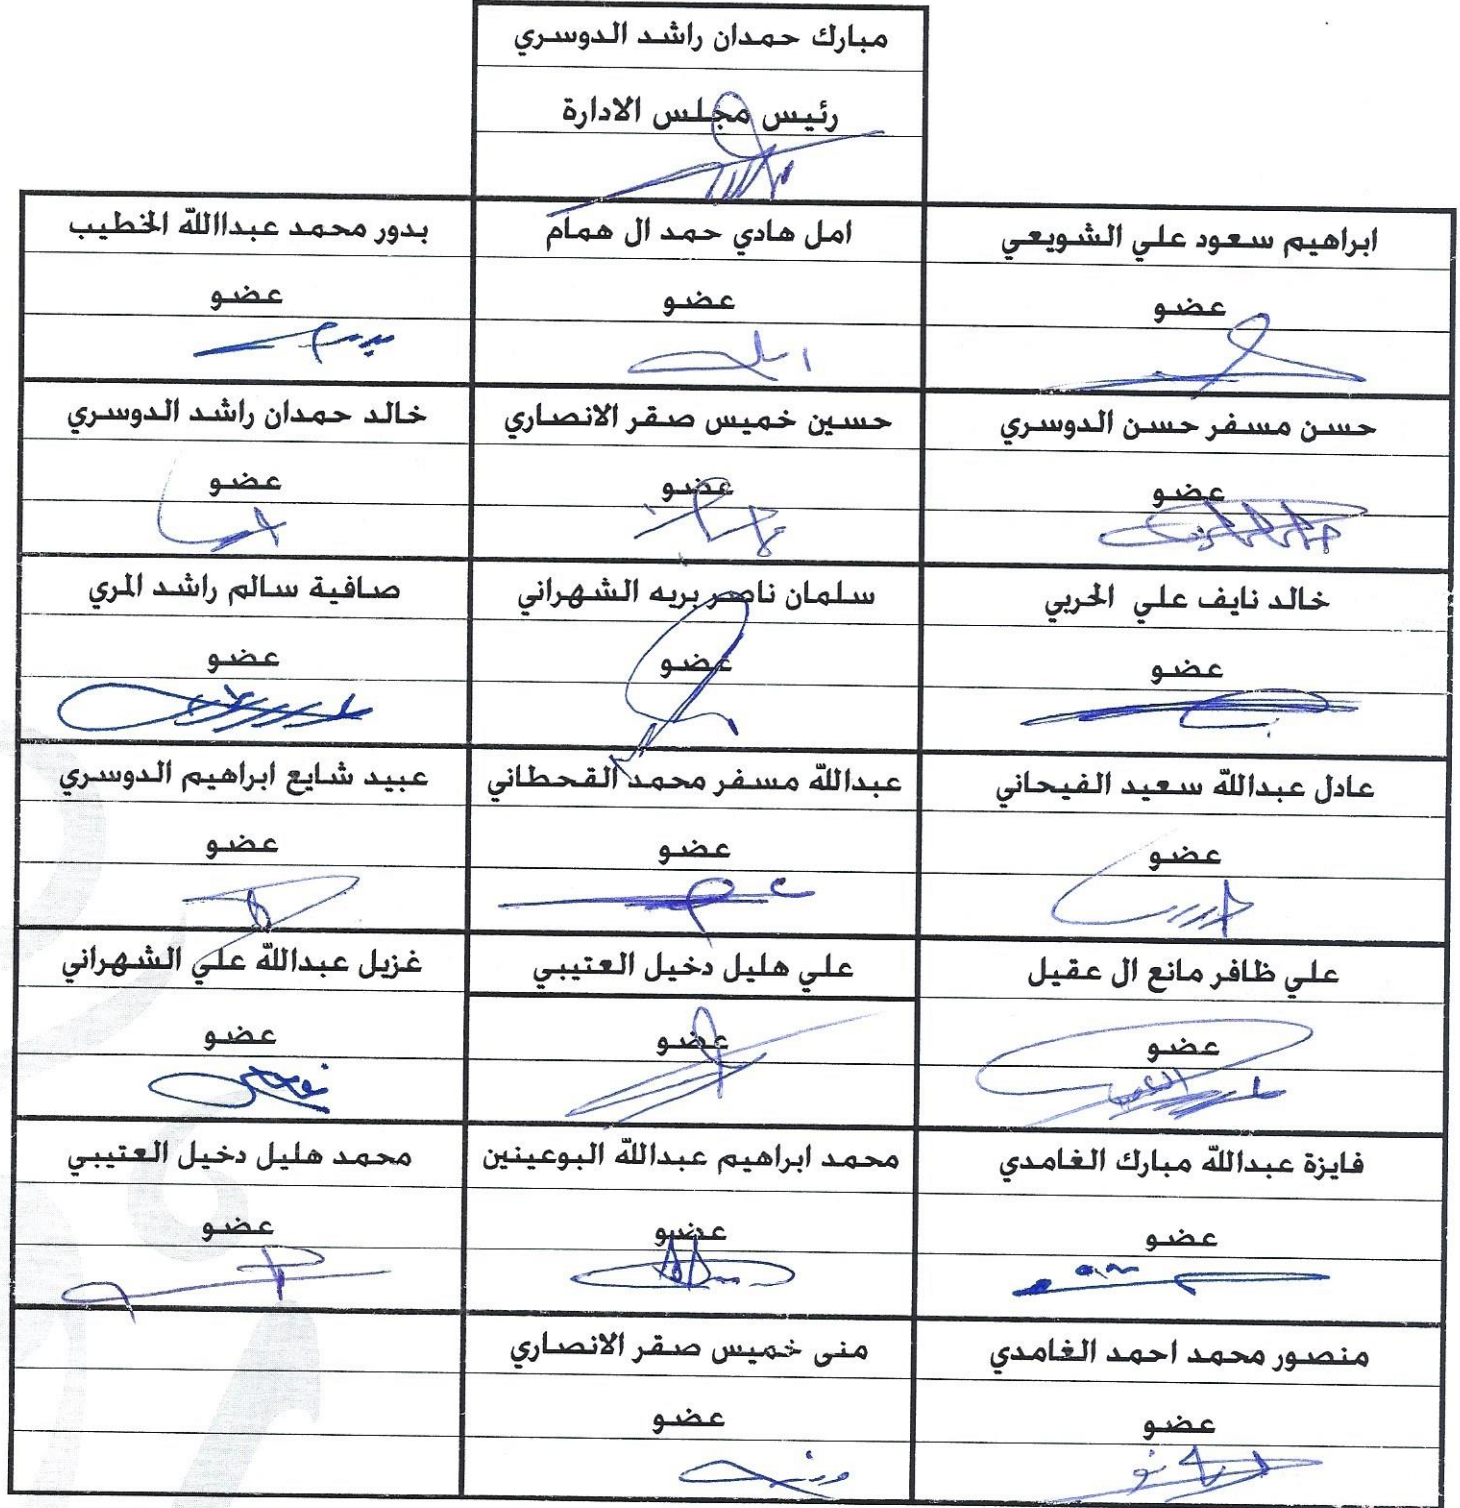 مبارك حمدان راشد الدوسري
رئيس مجلس الادارة
ابراهيم سعود علي الشويعي
امل هادي حمد ال همام
بدور محمد عبداالله الخطيب
عضو
عضو
عضو
حسن مسفر حسن الدوسري
حسين خميس صقر الانصاري
خالد حمدان راشد الدوسري
عضو
عضو
عضو
خالد نايف علي الحربي
سلمان ناصر بريه الشهراني
صافية سالم راشد المري
عضو
عضو
عضو
عادل عبدالله سعيد الفيحاني
عبدالله مسفر محمد القحطاني
عبيد شايع ابراهيم الدوسري
عضو
عضو
عضو
علي ظافر مانع ال عقيل
علي هليل دخيل العتيبي
غزيل عبدالله علي الشهراني
عضو
عضو
عضو
فايزة عبدالله مبارك الغامدي
محمد ابراهيم عبدالله البوعينين
محمد هليل دخيل العتيبي
عضو
عضو
عضو
منصور محمد احمد الغامدي
منى خميس صقر الانصاري
عضو
عضو